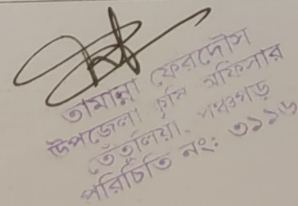 তামান্না ফেরদৌস
উপজেলা কৃষি অফিসার
তেঁতুলিয়া, পঞ্চগড়
পরিচিতি নং: ৩১১৬